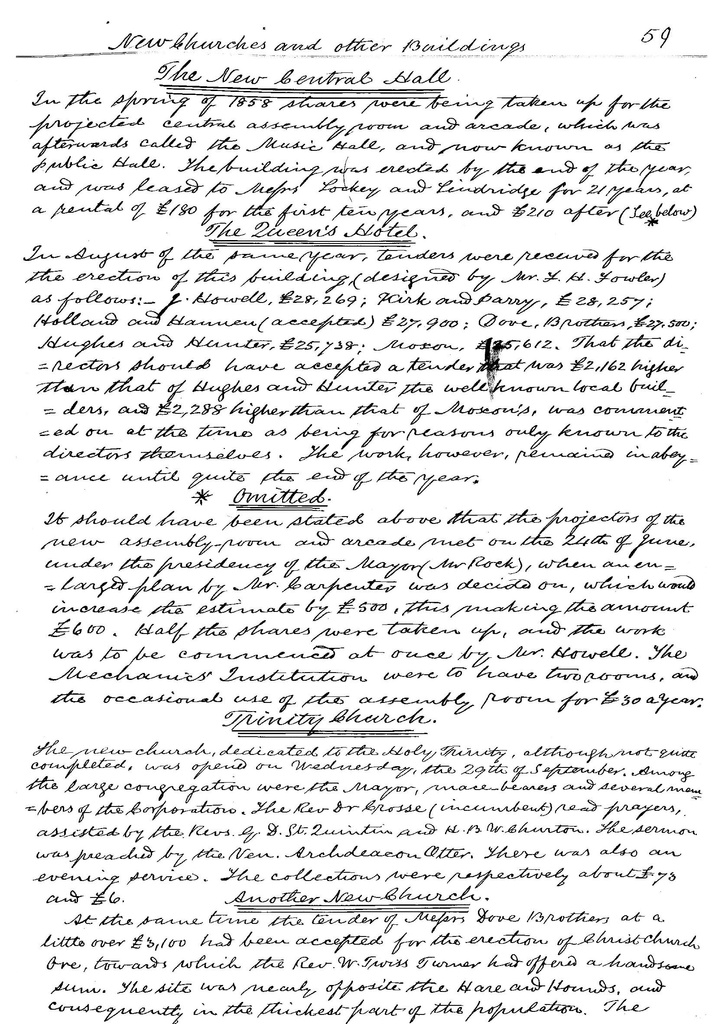 New Churches and other Buildings 59
The New Central Hall.
In the spring of 1858 shares were being taken up for the
projected central assembly room and arcade, which was
afterwards called the Music Hall, and now known as the
Public Hall. The building was erected by the end of the year,
and was leased to Messrs Lockey and Lindridge for 21 years, at
a rental of £180 for the first ten years, and £210 after (See * below)
The Queen's Hotel.
In August of the same year, tenders were received for the
the erection of this building, (designed by Mr. F. H. Fowler)
as follows:- J. Howell, £28,269; Kirk and Parry, £28,257;
Holland and Hannen (accepted) £27,900; Dove, Brothers, £27,500;
Hughes and Hunter, £25,738; Moxon, £25,612. That the di-
=rectors should have accepted a tender that was £2,162 higher
than that of Hughes and Hunter the well known local buil-
=ders, and £2,288 higher than that of Moxon's, was comment
=ed on at the time as being for reasons only known to the
directors themselves. The work, however, remained in abey=
=ance until quite the end of the year.
* Omitted.
It should have been stated above that the projectors of the
new assembly-room and arcade met on the 24th of June,
under the presidency of the Mayor (Mr Rock), when an en=
=larged plan by Mr. Carpenter was decided on, which would
increase the estimate by £500, thus making the amount
£600. Half the shares were taken up, and the work
was to be commenced at once by Mr. Howell. The
Mechanics' Institution were to have two rooms, and
the occasional use of the assembly room for £30 a year.
Trinity Church.
The new church, dedicated to the Holy Trinity, although not quite
completed, was opend on Wednesday, the 29th of September. Among
the large congregation were the Mayor, mace bearers and several mem
=bers of the Corporation. The Rev Dr Crosse (incumbent) read prayers,
assisted by the Revs. G. D. St. Quintin and H. B. W. Churton. The sermon
was preached by the Ven. Archdeacon Otter. There was also an
evening service. The collections were respectively about £73
and £6.
Another New Church.
At the same time the tender of Messrs Dove Brothers at a
little over £3,100 had been accepted for the erection of Christ Church
Ore, towards which the Rev. W. Twiss Turner had offered a handsome
sum. The site was nearly opposite the Hare and Hounds, and
consequently in the thickest part of the population. The